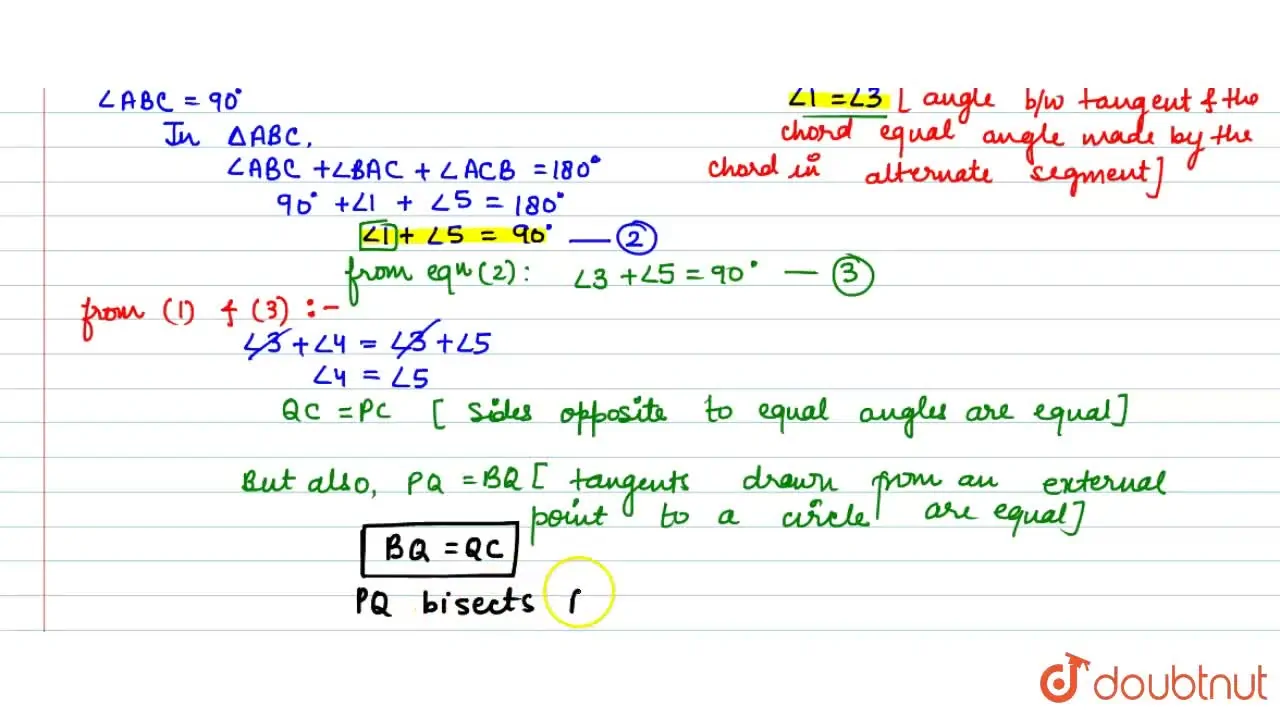 ∠ABC = 90°
In ΔABC,
∠ABC + ∠BAC + ∠ACB = 180°
90° + ∠1 + ∠5 = 180°
∠1 + ∠5 = 90° — 2
from eqn (2): ∠3 + ∠5 = 90° — 3
∠1 = ∠3 [ angle b/w tangent & the
chord equal angle made by the
chord in alternate segment]
from (1) & (3) :-
∠3 + ∠4 = ∠3 + ∠5
∠4 = ∠5
QC = PC [ sides opposite to equal angles are equal]
But also, PQ = BQ [ tangents drawn from an external
point to a circle are equal]
BQ = QC
PQ bisects
doubtnut